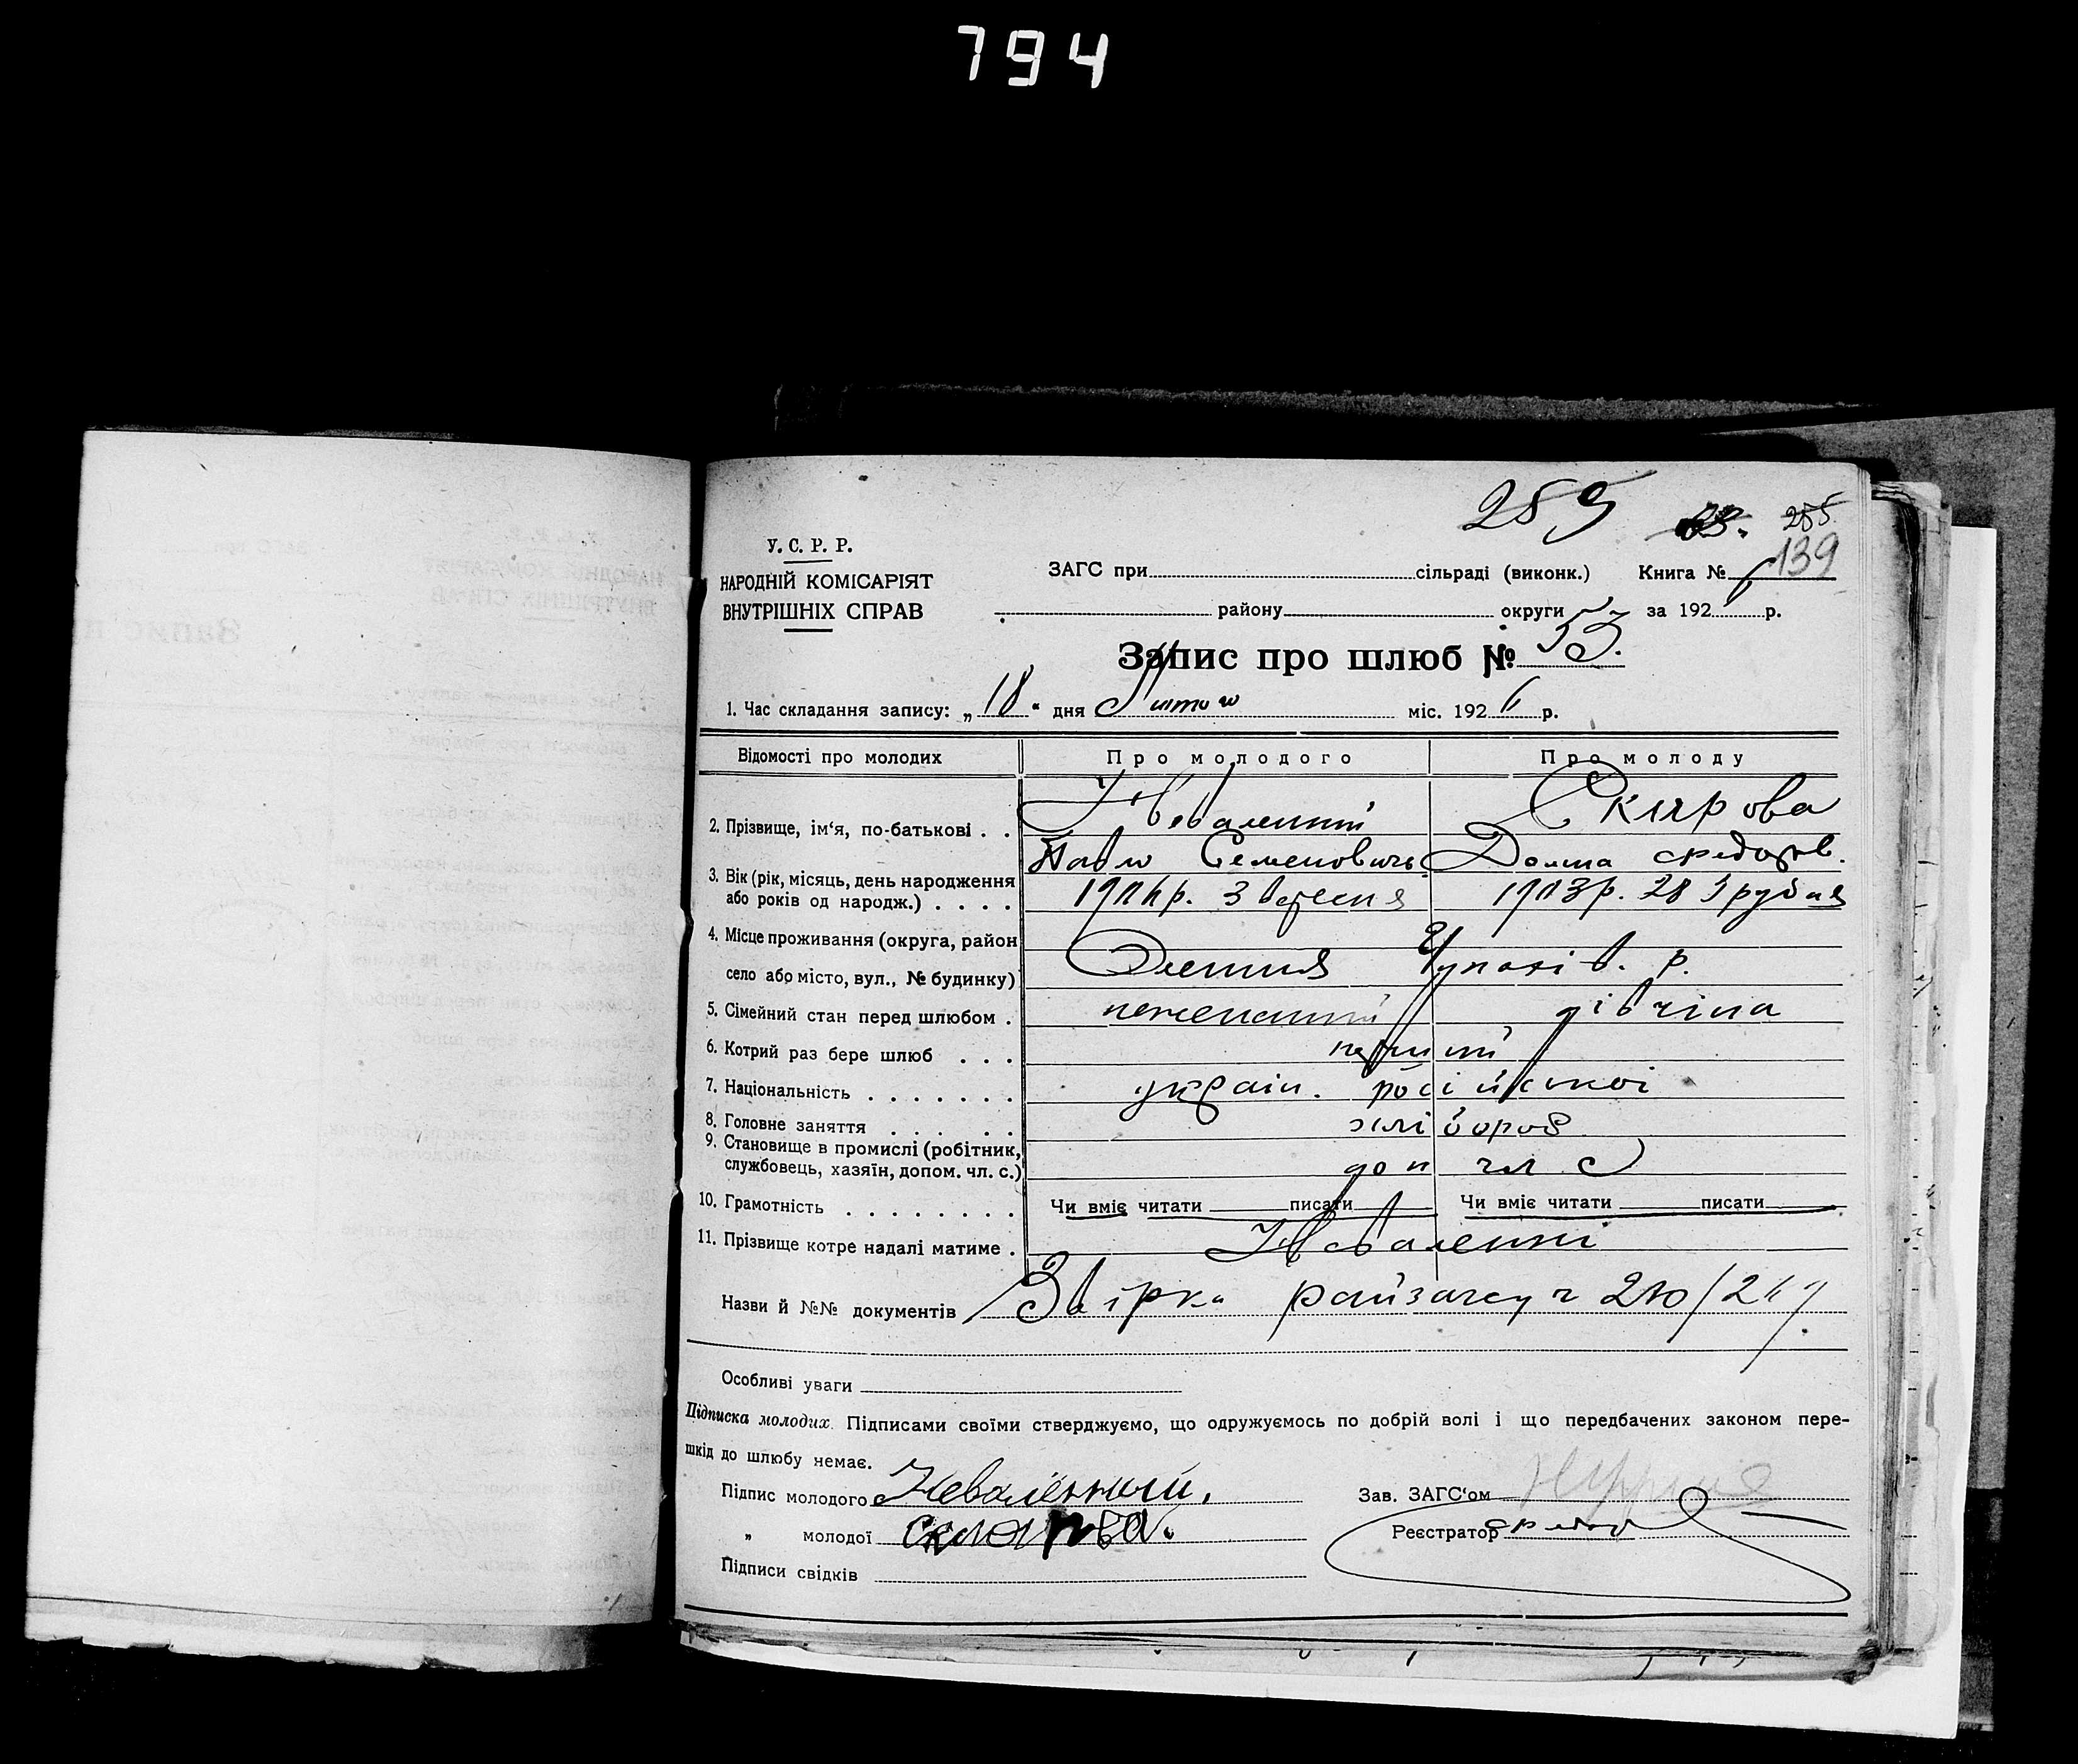 794
259 255
139
У. С. Р. Р.
НАРОДНІЙ КОМІСАРІЯТ
ВНУТРІШНІХ СПРАВ
ЗАГС при сільраді (виконк.) Книга №
району округи за 1926 р.
Запис про шлюб № 53.
1. Час складання запису: „18“ дня Лютого міс. 1926 р.
Відомості про молодих Про молодого Про молоду
2. Прізвище, ім‘я, по-батькові . . Неваленний Склярова
Павло Семенович Домна Федоров.
3. Вік (рік, місяць, день народження
або років од народж.) . . . . вересня 28
4. Місце проживання (округа, район
село або місто, вул., № будинку) р.
5. Сімейний стан перед шлюбом . неженатий дівчина
6. Котрий раз бере шлюб . . . перший
7. Національність . . . . . . . україн. російської
8. Головне заняття . . . . . хлібороб
9. Становище в промислі (робітник,
службовець, хазяїн, допом. чл. с.) доп чл с
10. Грамотність . . . . . . . . Чи вміє читати писати Чи вміє читати писати
11. Прізвище котре надалі матиме . Неваленні
Назви й №№ документів Звірка райзагсу
Особливі уваги
Підписка молодих. Підписами своїми стверджуємо, що одружуємось по добрій волі і що передбачених законом пере-
шкід до шлюбу немає.
Підпис молодого Неваленный. Зав. ЗАГС‘ом
„ молодої Склярова. Реєстратор
Підписи свідків